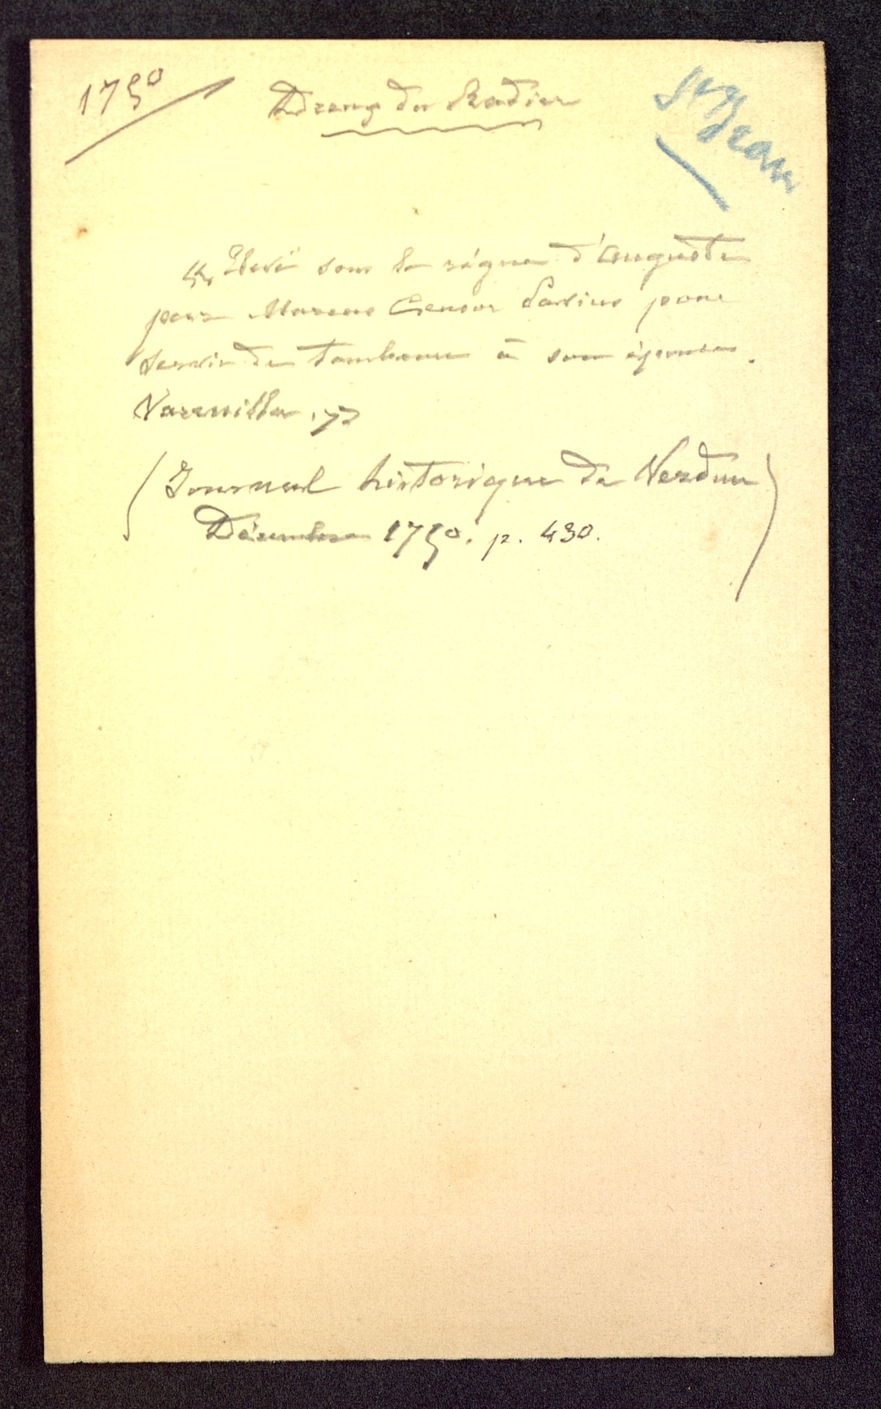 1750
Dreux du Radier
St Jean
« Élevé sous le règne d'Auguste
par Marcus Censor Pavius pour
servir de tombeau à son épouse
Varenilla. »
(Journal historique de Verdun
Décembre 1750. p. 430.)